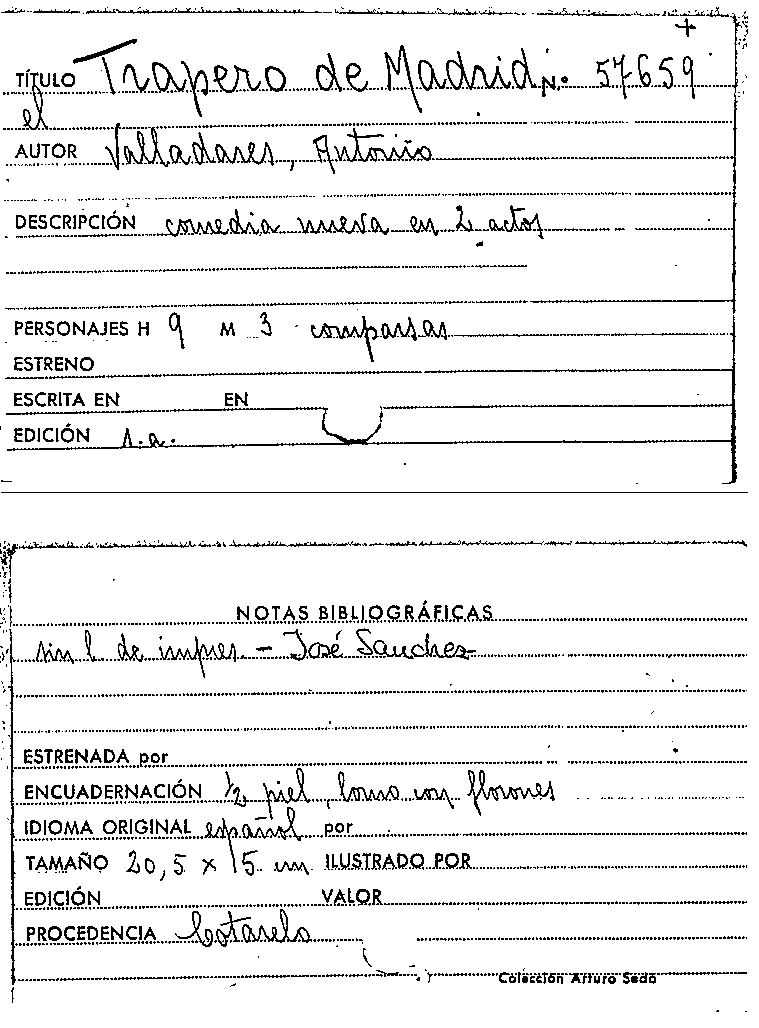 +
TÍTULO Trapero de Madrid N.º 57659
el
AUTOR Valladares, Antonio
DESCRIPCIÓN comedia nueva en 2 actos
PERSONAJES H 9 M 3 comparsas
ESTRENO
ESCRITA EN EN
EDICIÓN s.a.
NOTAS BIBLIOGRÁFICAS
sin l de impres. - José Sanchez
ESTRENADA por
ENCUADERNACIÓN 1/2 piel, lomo con florones
IDIOMA ORIGINAL español por
TAMAÑO 20,5 x 15 cm ILUSTRADO POR
EDICIÓN VALOR
PROCEDENCIA Cotarelo
Colección Arturo Sedó